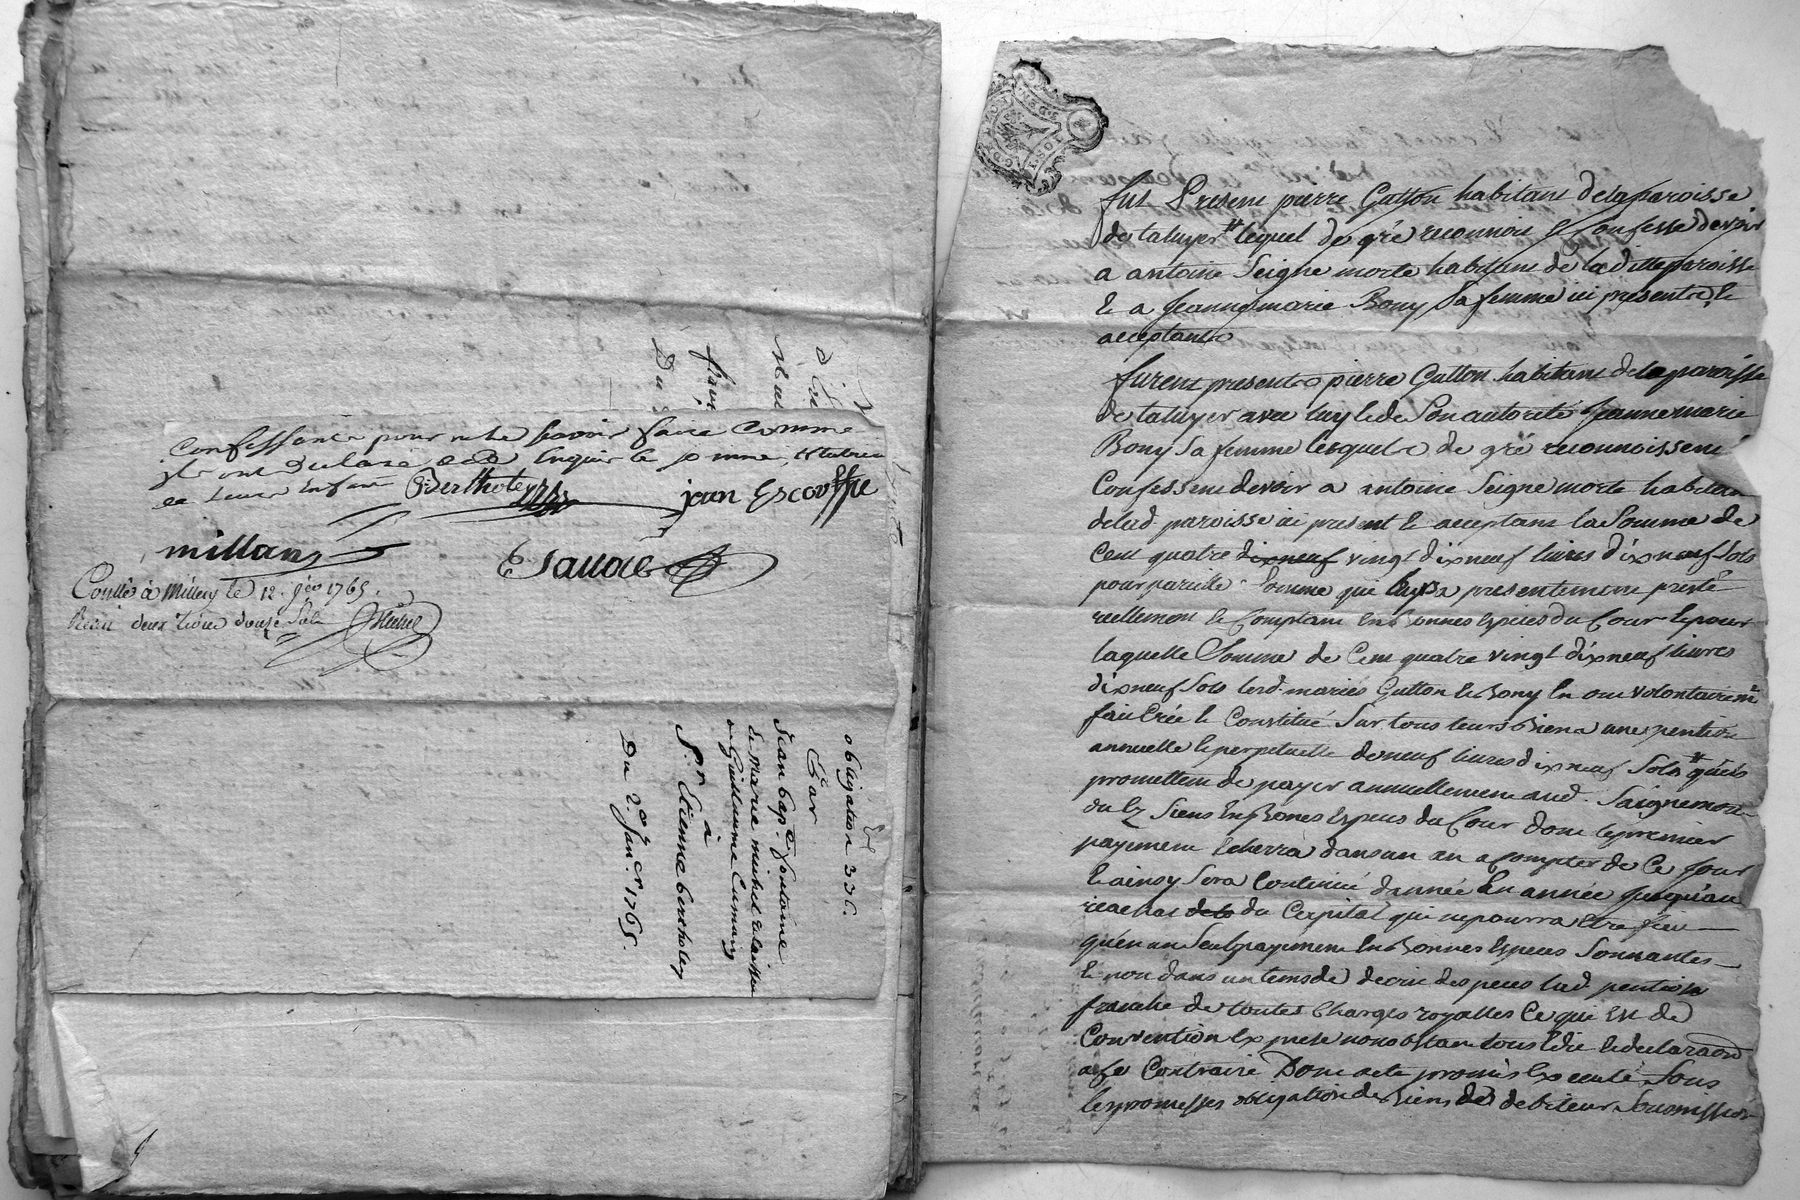 confessants pour ne le scavoir faire comme
ils ont declaré de ce enquis le somme,
et leurs enfans Berthole jean Escoffie
millan Esauvae
Conllé à Millery le 12. 1765.
Recu deux livres douze sols
obligation 336.
Par
Jean bap.te fontaine
de marie michel
et Guillaume
à
Sr. Etienne bertholey
Du 2.e Jan.er 1765.
fut Present pierre Gutton habitant de la paroisse
de taluyer lequel de gré reconnoit & Confesse devoir
a antoine Seigne morte habitant de la ditte paroisse
& a Jeanne marie Bony Sa femme ici presente &
acceptante
furent presents pierre Gutton habitant de la paroisse
de taluyer avec luy & de Son autorité Jeanne marie
Bony Sa femme lesquels de gré reconnoissent
Confessent devoir a antoine Seigne morte habitant
de lad. paroisse ici present & acceptant la Somme de
Cent quatre dixneuf vingt dixneuf livres dixneuf sols
pour pareille Somme qui luy a presentement presté
reellement & Comptant En Bonnes Especes du Cour & pour
laquelle Somme de Cent quatre vingt dixneuf livres
dixneuf Sols lesd. mariés Gutton & Bony En ont volontairemt
fait Crée & Constitué Sur tous leurs Biens une pention
annuelle & perpetuelle de neuf livres dixneuf Sols quils
promettent de payer annuellement aud. Saignemorte
ou Ez Siens En Bones Especes du Cour dont le premier
payement Echerra dans un an a Compter de Ce Jour
& ainsy Sera Continué dannée En année Jusqu'au
reachat dela du Capital qui ne pourra Etre fait
qu'en un Seul payement En Bonnes Especes Sonnantes
& non dans un tems de decrie despeces lad. pention
franche de toutes Charges royalles Ce qui Est de
Convention Expresse nonobstant tous Edit & declaraon
a Ce Contraire Dont acte promis Executé Sous
les promesses obligation de Biens des debiteur Soumission